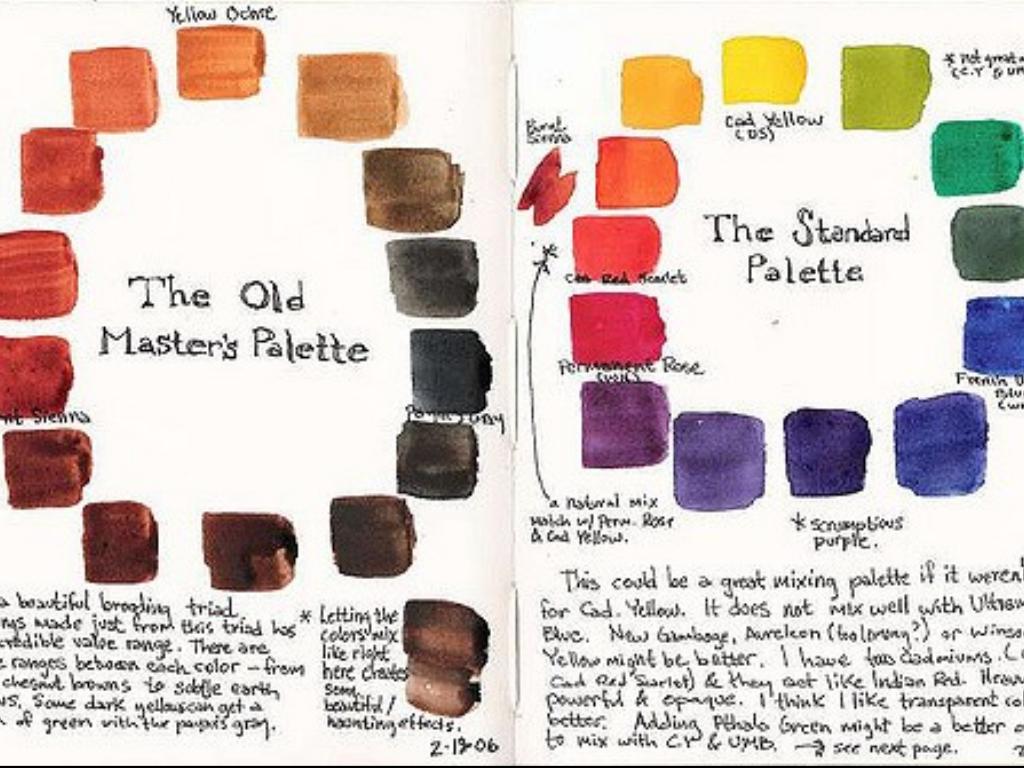 Yellow Ochre
The Old
Master's Palette
nt Sienna
Payne's Gray
a beautiful brooding triad.
ngs made just from this triad has
credible value range. There are
e ranges between each color - from
chesnut browns to subtle earth
ws. Some dark yellows can get a
of green with the payne's gray.
* Letting the
colors mix
like right
here creates
som
beautiful /
haunting effects.
2-13-06
* not great
(C.Y & UM
Cad Yellow
(DS)
Burnt
Sienna
The Standard
Palette
Cad Red Scarlet
Permanent Rose
(WN)
French U
Blu
(WN
a natural mix
match w/ Perm. Rose
& Cad Yellow.
* scrumptious
purple.
This could be a great mixing palette if it weren't
for Cad. Yellow. It does not mix well with Ultram
Blue. New Gamboge, Aureolin (
?) or Winso
Yellow might be better. I have two Cadmiums. (
Cad Red Scarlet) & they act like Indian Red. Heav
powerful & opaque. I think I like transparent co
better. Adding Pthalo Green might be a better o
to mix with CY & UMB. → see next page.